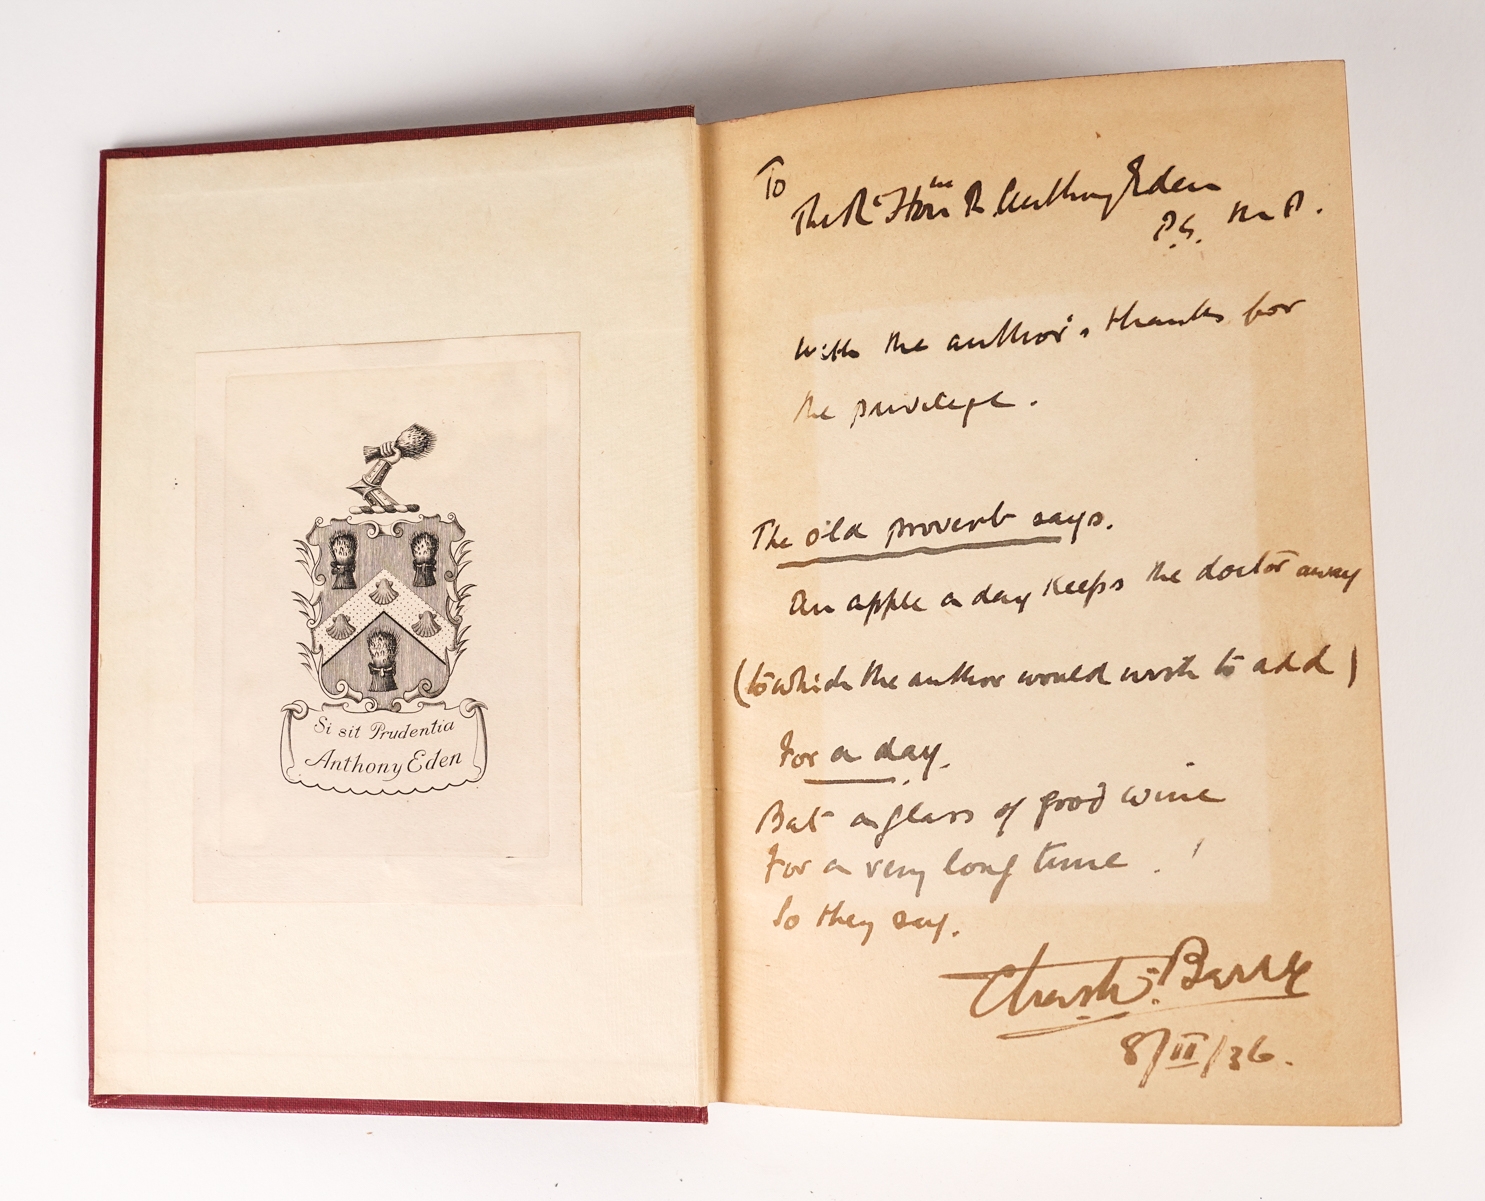 Si sit Prudentia
Anthony Eden
To
The Rt Honble R Anthony Eden
P.C. M.P.
With the author's thanks for
the privilege.
The old proverb says.
An apple a day keeps the doctor away
(to which the author would wish to add)
For a day.
But a glass of good wine
For a very long time!
So they say.
Berry
8/II/36.